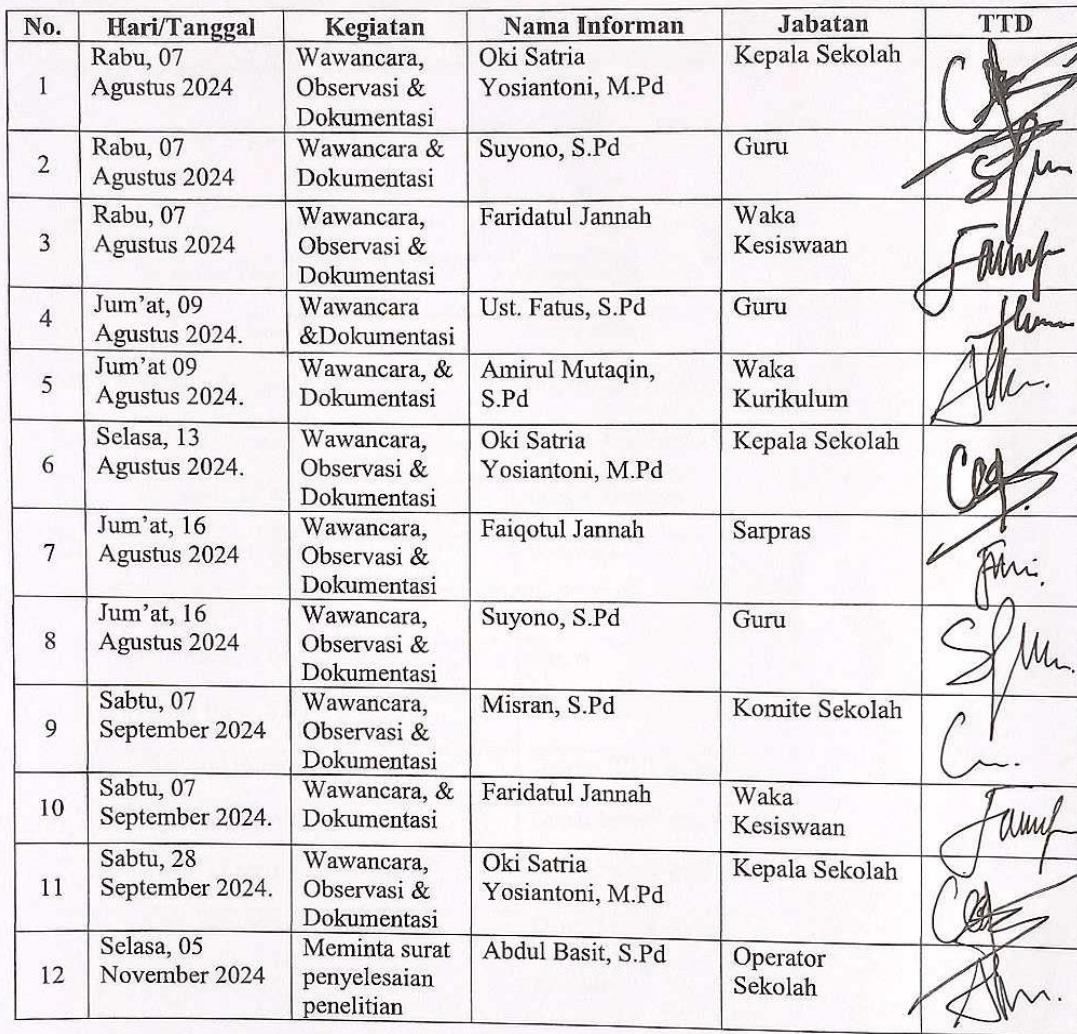 No. Hari/Tanggal Kegiatan Nama Informan Jabatan TTD
1 Rabu, 07 Agustus 2024 Wawancara, Observasi & Dokumentasi Oki Satria Yosiantoni, M.Pd Kepala Sekolah
2 Rabu, 07 Agustus 2024 Wawancara & Dokumentasi Suyono, S.Pd Guru
3 Rabu, 07 Agustus 2024 Wawancara, Observasi & Dokumentasi Faridatul Jannah Waka Kesiswaan
4 Jum'at, 09 Agustus 2024. Wawancara &Dokumentasi Ust. Fatus, S.Pd Guru
5 Jum'at 09 Agustus 2024. Wawancara, & Dokumentasi Amirul Mutaqin, S.Pd Waka Kurikulum
6 Selasa, 13 Agustus 2024. Wawancara, Observasi & Dokumentasi Oki Satria Yosiantoni, M.Pd Kepala Sekolah
7 Jum'at, 16 Agustus 2024 Wawancara, Observasi & Dokumentasi Faiqotul Jannah Sarpras
8 Jum'at, 16 Agustus 2024 Wawancara, Observasi & Dokumentasi Suyono, S.Pd Guru
9 Sabtu, 07 September 2024 Wawancara, Observasi & Dokumentasi Misran, S.Pd Komite Sekolah
10 Sabtu, 07 September 2024. Wawancara, & Dokumentasi Faridatul Jannah Waka Kesiswaan
11 Sabtu, 28 September 2024. Wawancara, Observasi & Dokumentasi Oki Satria Yosiantoni, M.Pd Kepala Sekolah
12 Selasa, 05 November 2024 Meminta surat penyelesaian penelitian Abdul Basit, S.Pd Operator Sekolah